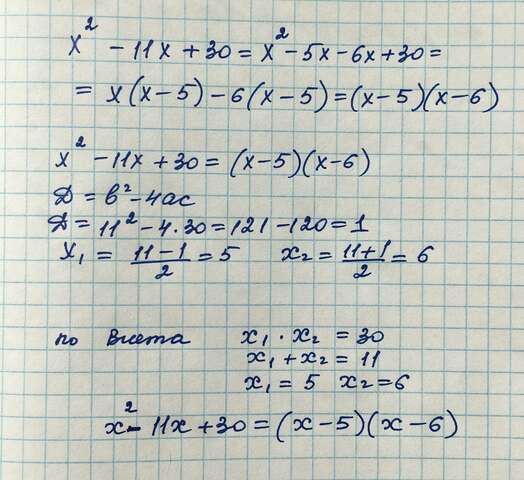 x² - 11x + 30 = x² - 5x - 6x + 30 =
= x(x-5) - 6(x-5) = (x-5)(x-6)
x² - 11x + 30 = (x-5)(x-6)
D = b² - 4ac
D = 11² - 4·30 = 121 - 120 = 1
x₁ = (11-1)/2 = 5 x₂ = (11+1)/2 = 6
по Виета x₁ · x₂ = 30
x₁ + x₂ = 11
x₁ = 5 x₂ = 6
x² - 11x + 30 = (x-5)(x-6)